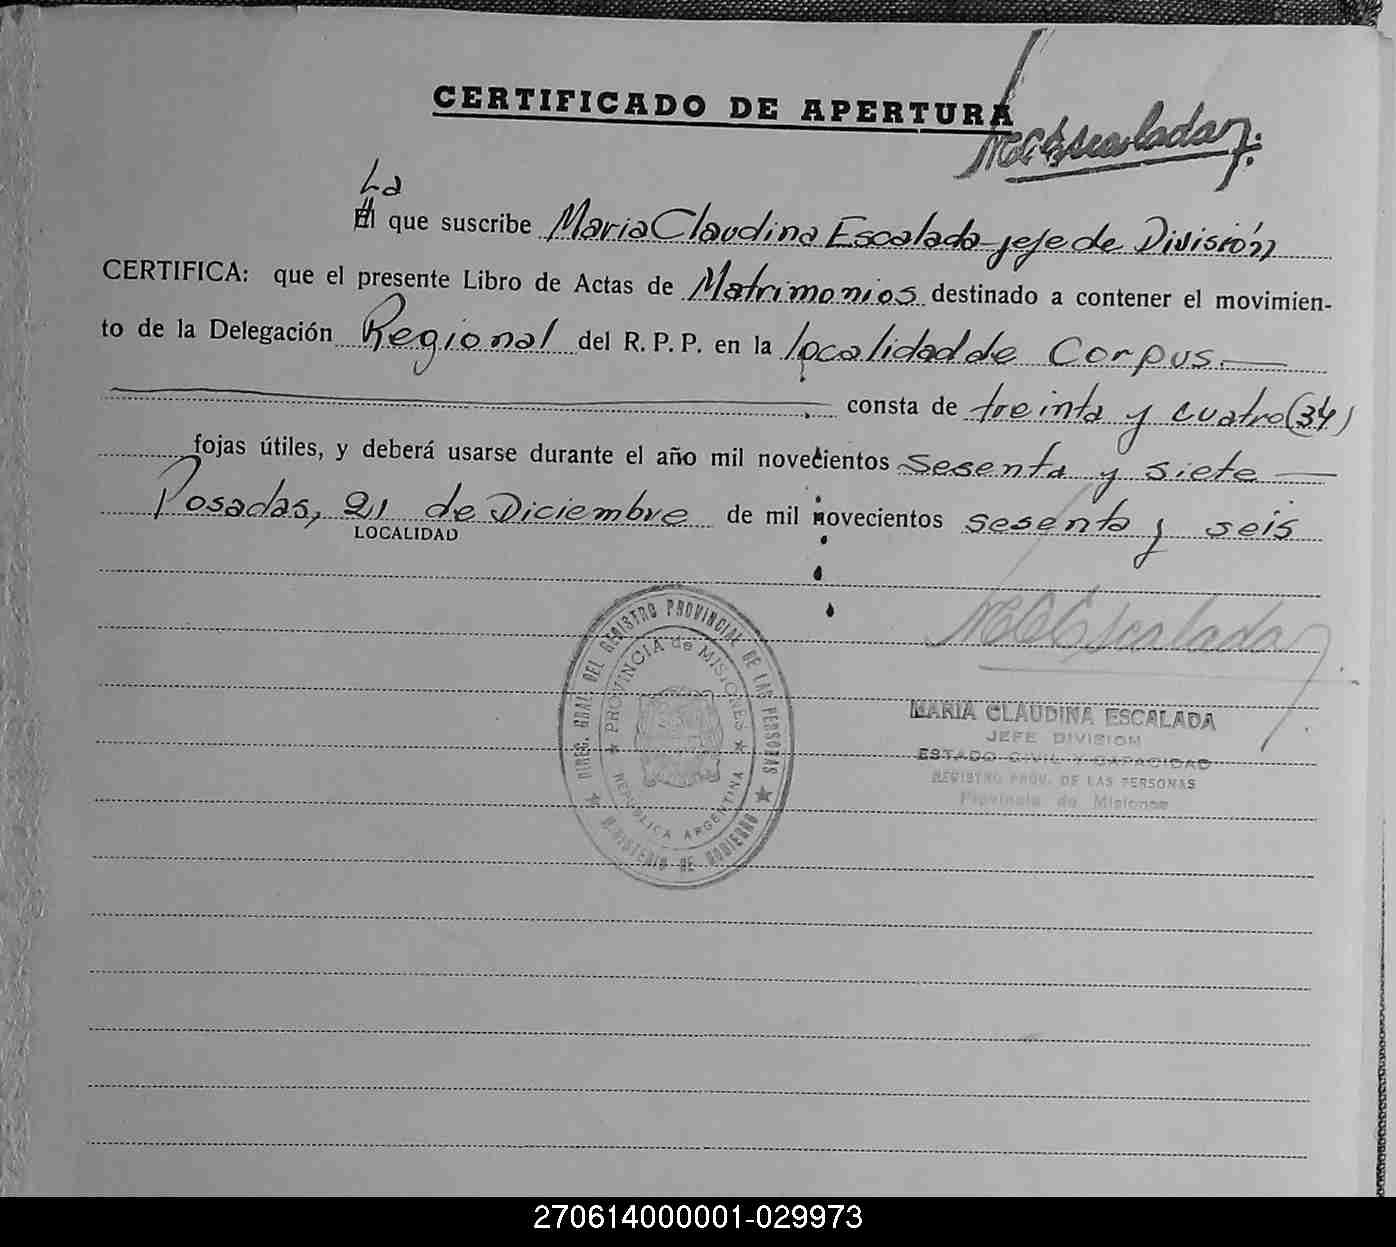 CERTIFICADO DE APERTURA
MCEscalada
La
El que suscribe Maria Claudina Escalada - jefe de División
CERTIFICA: que el presente Libro de Actas de Matrimonios destinado a contener el movimien-
to de la Delegación Regional del R. P. P. en la localidad de Corpus.
consta de treinta y cuatro (34)
fojas útiles, y deberá usarse durante el año mil novecientos sesenta y siete
Posadas, 21 de Diciembre de mil novecientos sesenta y seis
LOCALIDAD
DIREC. GRAL. DEL REGISTRO PROVINCIAL DE LAS PERSONAS
PROVINCIA de MISIONES
REPUBLICA ARGENTINA
MINISTERIO DE GOBIERNO
MCEscalada
MARIA CLAUDINA ESCALADA
JEFE DIVISION
ESTADO CIVIL Y CAPACIDAD
REGISTRO PROV. DE LAS PERSONAS
Provincia de Misiones
270614000001-029973